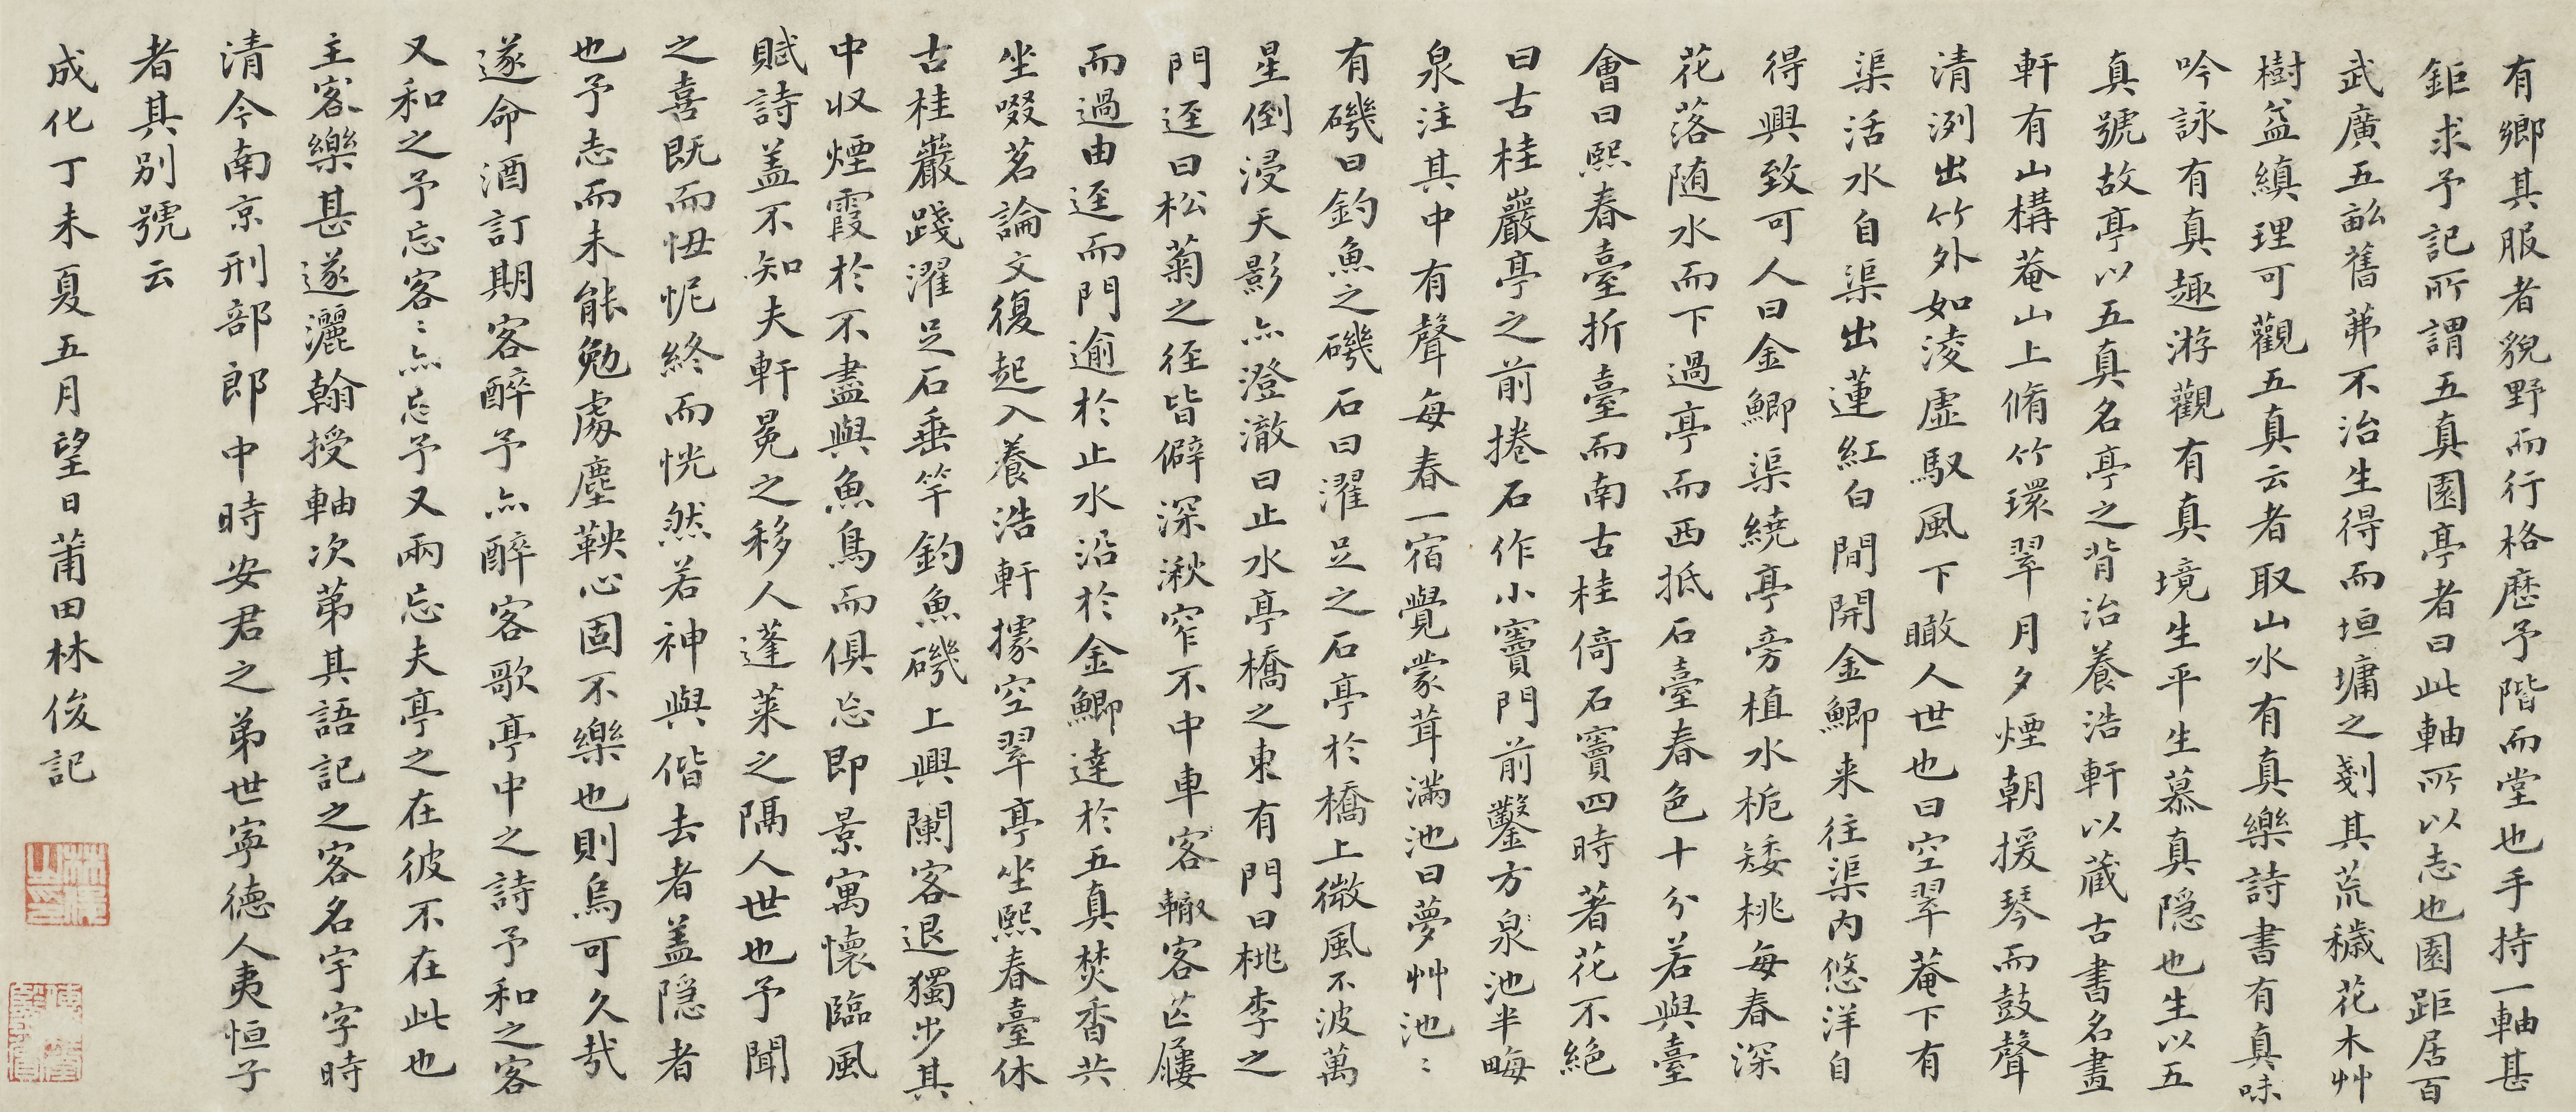 有鄉其服者貌野而行格歷予階而堂也手持一軸甚
鉅求予記所謂五真園亭者曰此軸所以志也園距居百
武廣五畝舊茀不治生得而垣墉之剗其荒穢花木艸
樹益縝理可觀五真云者取山水有真樂詩書有真味
吟詠有真趣游觀有真境生平生慕真隱也生以五
真號故亭以五真名亭之背治養浩軒以藏古書名畫
軒有山構菴山上脩竹環翠月夕煙朝援琴而鼓聲
清洌出竹外如淩虛馭風下瞰人世也曰空翠菴下有
渠活水自渠出蓮紅白間開金鯽来往渠内悠洋自
得興致可人曰金鯽渠繞亭旁植水梔矮桃每春深
花落随水而下過亭而西抵石臺春色十分若與臺
會曰熙春臺折臺而南古桂倚石竇四時著花不絕
曰古桂巖亭之前捲石作小竇門前鑿方泉池半畮
泉注其中有聲每春一宿覺蒙茸滿池曰夢艸池〻
有磯曰釣魚之磯石曰濯足之石亭於橋上微風不波萬
星倒浸天影亦澄澈曰止水亭橋之東有門曰桃李之
門逕曰松菊之徑皆僻深湫窄不中車客轍客芒屨
而過由逕而門逾於止水沿於金鯽達於五真焚香共
坐啜茗論文復起入養浩軒據空翠亭坐熙春臺休
古桂巖踐濯足石垂竿釣魚磯上興闌客退獨步其
中収煙霞於不盡與魚鳥而俱忘即景寓懷臨風
賦詩盖不知夫軒冕之移人蓬萊之隔人世也予聞
之喜既而忸怩終而恍然若神與偕去者盖隱者
也予志而未能勉處塵鞅心固不樂也則烏可久哉
遂命酒訂期客醉予亦醉客歌亭中之詩予和之客
又和之予忘客〻亦忘予又兩忘夫亭之在彼不在此也
主客樂甚遂灑翰授軸次第其語記之客名宇字時
清今南京刑部郎中時安君之弟世寧德人夷恒子
者其别號云
成化丁未夏五月望日莆田林俊記